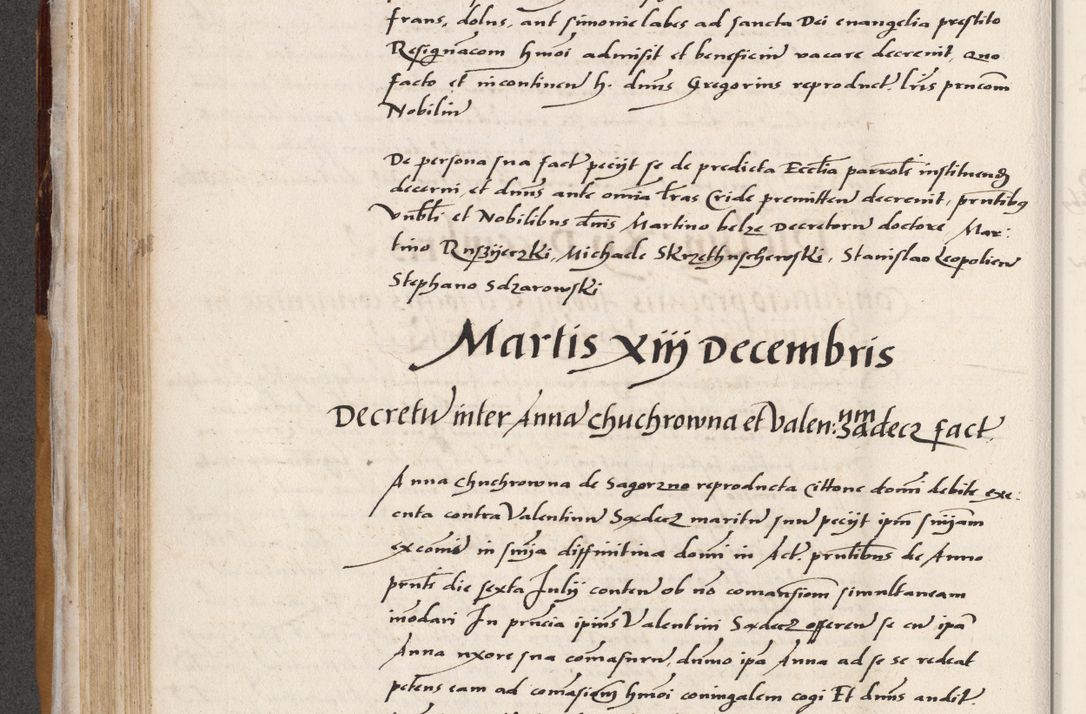 fraus, dolus, aut simonie labes ad sancta Dei euangelia prestito
Resignacom hmoi admisit et beneficiu vacare decreuit, Quo
facto et incontinen h. dnus Gregorius reproduct. lris prncom
Nobiliu
De persona sua fact peciit se de predicta Ecctia parrotli instituend
decerni et dnus ante omnia lras Cride premitten decreuit, prntibus
Vnbli et Nobilibus dnis Martino belze Decretoru doctore, Mar:
tino Rusziieczki, Michaele Skrzethuschewski, Stanislao Leopolien
Stephano Sdzarowski
Martis xiij Decembris
Decretu inter Anna Chuchrowna et Valen:num Sadecz fact.
Anna Chuchrowna de Sagorzno reproducta Cittone domi debite exe:
cuta contra Valentinu Sadecz maritu suu peciit ipm sniam
excomis in snia diffinitiua domi in Act. prntibus de Anno
prnti die sexta Julij conten ob no comansiom simultaneam
inodari In prncia ipius Valentini Sadecz offeren se cu ipa
Anna uxore sua comasuru, dumo ipa Anna ad se se redeat
petens eam ad comasiom hmoi coniugalem cogi Et dnus audit.